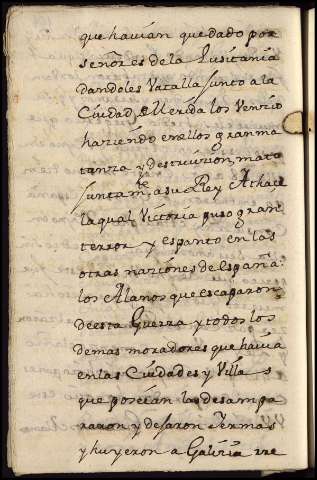 que havian quedado por
señores de la Lusitania
dandoles Vatalla junto a la
Ciudad de Merida los Venzio
haziendo en ellos gran ma
tanza y destruizion, mato
juntam.te a su Rey Athace
la qual Victoria puso gran
terror y espanto en las
otras naziones de España.
los Alanos que escaparon
de esta Guerra y todos los
demas moradores que havia
en las Ciudades y Villas
que poseian las desampa
raron y dejaron Yermas
y huyeron a Galizia